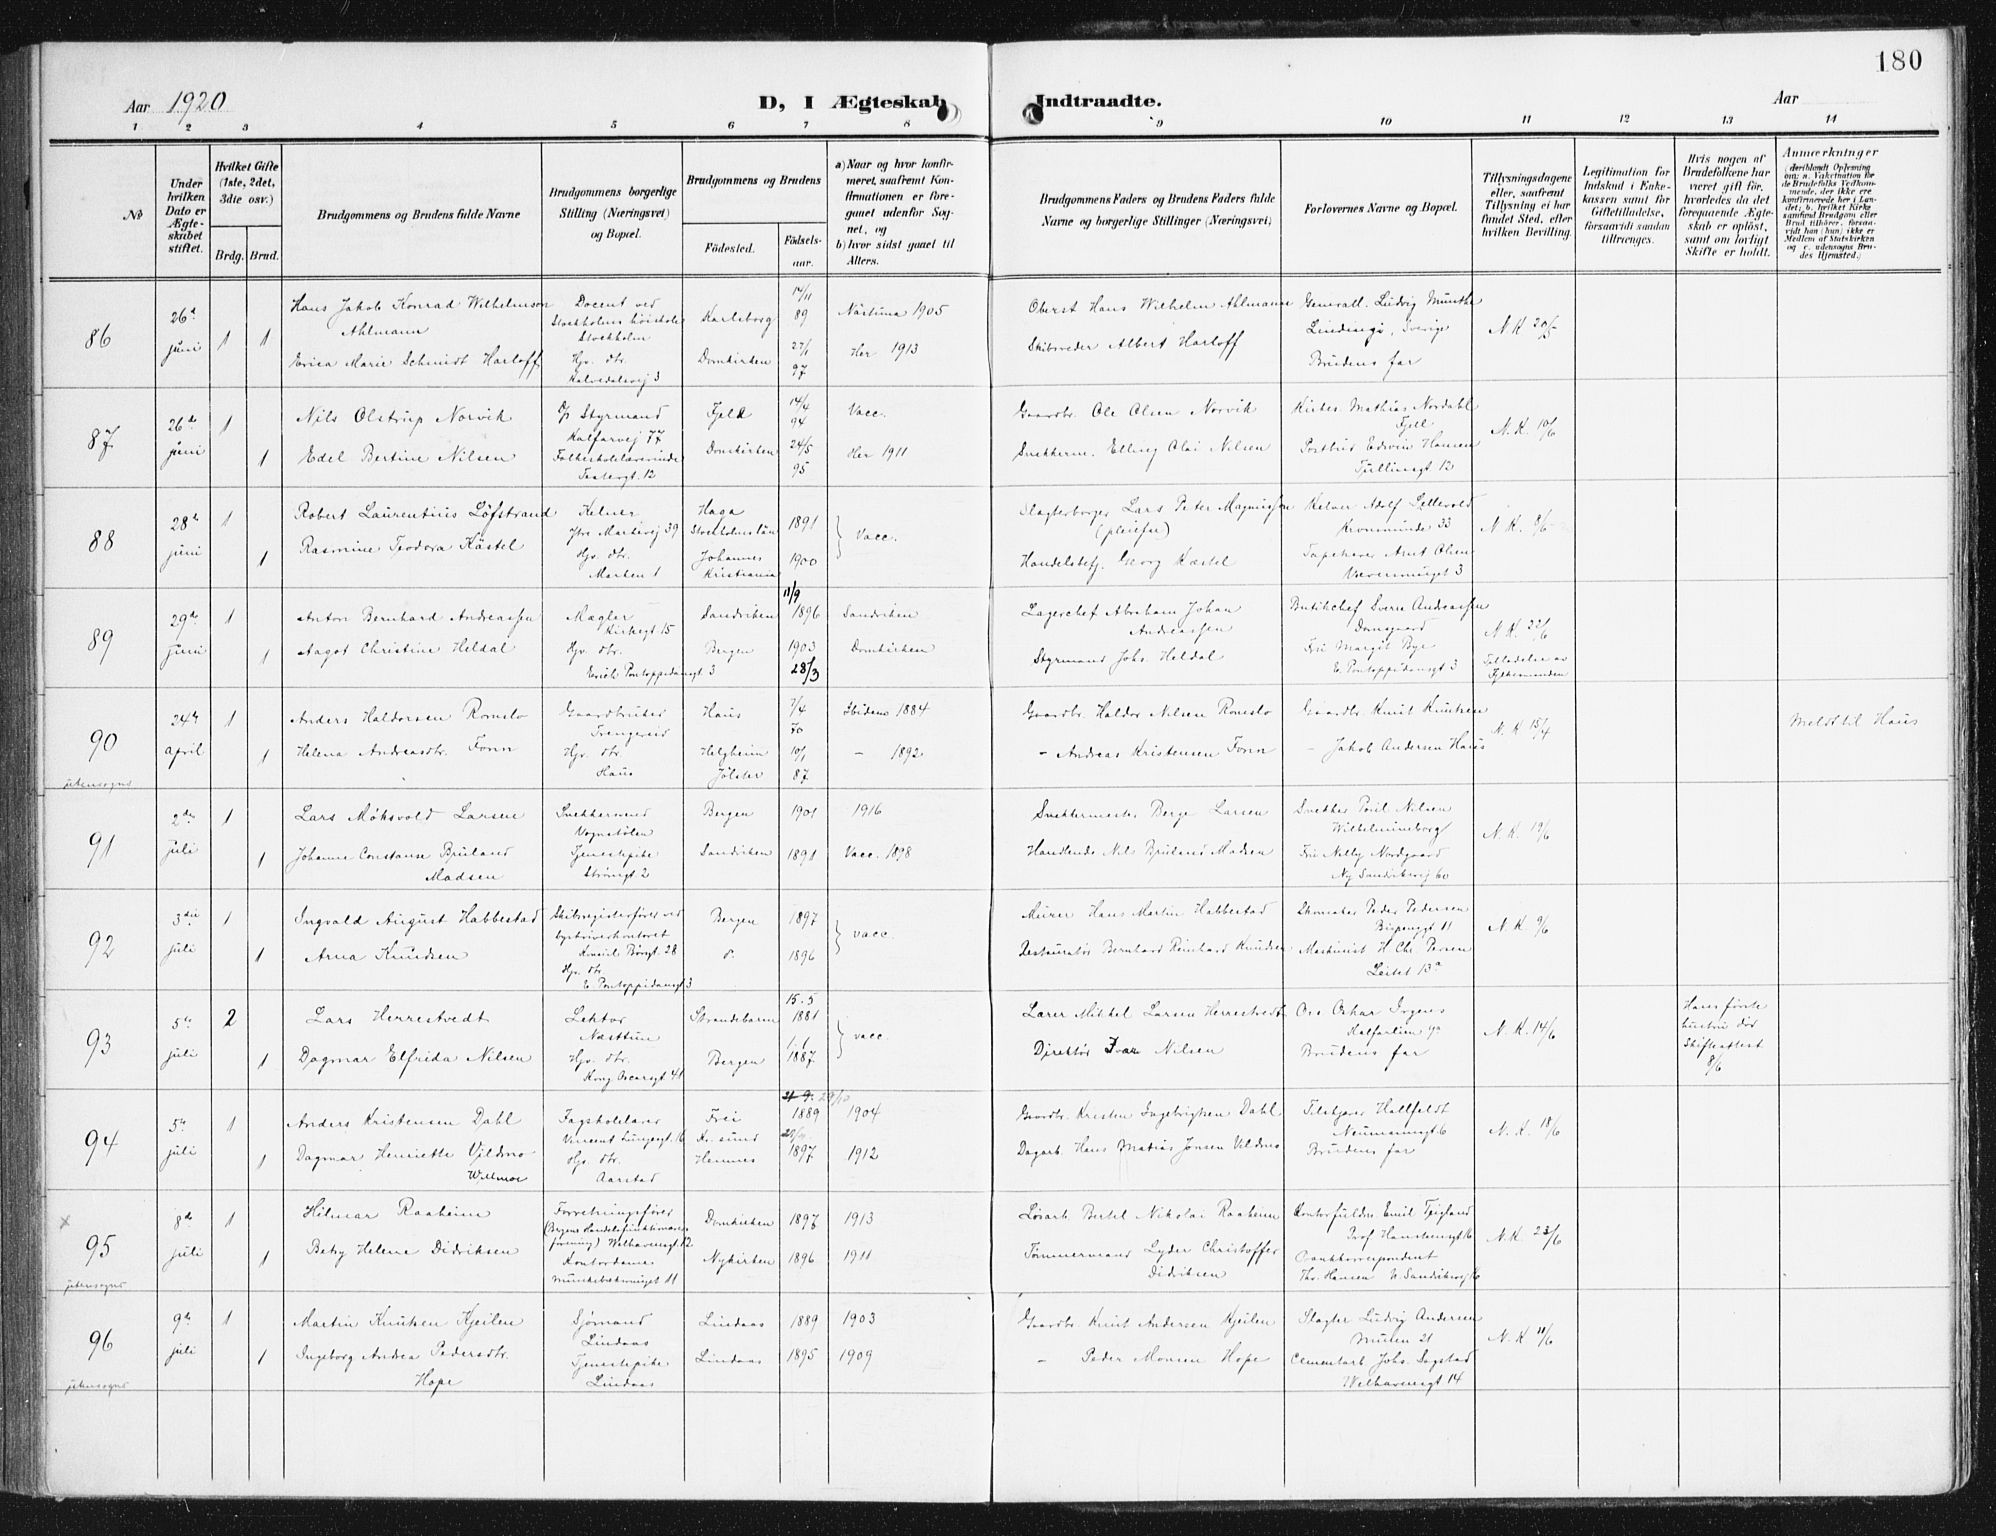 180
Aar 1920
D, I Ægteskab
Indtraadte.
Aar
1 2 3 4 5 6 7 8 9 10 11 12 13 14
No
Under hvilken Dato er Ægteskabet stiftet.
Hvilket Gifte (1ste, 2det, 3die osv.)
Brdg. Brud.
Brudgommens og Brudens fulde Navne
Brudgommens borgerlige Stilling (Næringsvei) og Bopæl.
Brudgommens og Brudens
Födested.
Födselsaar.
a) Naar og hvor konfirmeret, saafremt Konfirmationen er foregaaet udenfor Sognet, og
b) hvor sidst gaaet til Alters.
Brudgommens Faders og Brudens Faders fulde Navne og borgerlige Stillinger (Næringsvei)
Forlovernes Navne og Bopæl.
Tillysningsdagene eller, saafremt Tillysning ei har fundet Sted, efter hvilken Bevilling.
Legitimation for Indskud i Enkekassen samt for Giftetilladelse, forsaavidt saadan tiltrænges.
Hvis nogen af Brudefolkene har været gift för, hvorledes da det foregaaende Ægteskab er oplöst, samt om lovligt Skifte er holdt.
Anmærkninger
86
26de juni
1 1
Hans Jakob Konrad Wilhelmson Ahlmann
Docent ved Stockholms höiskole Stockholm
Karlsborg
14/11 89
Nästuna 1905
Oberst Hans Wilhelm Ahlmann
Generall. Ludvig Munthe
Lindingö, Sverige
N. K. 20/5
Erica Marie Schmidt Harloff
Hjv. dtr.
Kalvedalsvej 3
Domkirken
27/1 97
Her 1913
Skibsreder Albert Harloff
Brudens far
87
26de juni
1
Nils Olstrup Norvik
Styrmand
Kalfarvej 77
Fjeld
14/4 94
Vacc.
Gaardbr. Ole Olsen Norvik
Kirkes. Mathias Nordahl
Fjell
N. K. 10/6
1
Edel Bertine Nilsen
Folkeskolelærerinde
Teatergt. 12
Domkirken
24/5 95
Her 1911
Snekkerm. Elling Olai Nilsen
Postbud Edvin Hansen
Tullinsgt. 12
88
28de juni
1
Robert Laurentius Löfstrand
Kelner
Ytre Markevej 39
Haga
Stockholms län
1891
Vacc.
Slagterborger Lars Peter Magnussen
(pleiefar)
Kelner Adolf Settevold
33
N. K. 8/6
1
Rasmine Teodora Kästel
Hjv. dtr.
Marken 1
Johannes
Kristiania
1900
Handelsbetj. Georg Kæstel
Tapetserer Arnt Olsen
3
89
29de juni
1
Anton Bernhard Andreassen
Mægler
Kirkegt 15
Sandviken
11/9 1896
Sandviken
Lagerchef Abraham Johan Andreassen
Butikchef Sverre Andreassen
Damsgaard
N. K. 22/6
1
Aagot Christine Heldal
Hjv. dtr.
Erich Pontoppidansgt 3
Bergen
1903 28/3
Domkirken
Styrmand Johs. Heldal
Fru Margit Bye
E. Pontoppidansgt 3
Tilladelse av Fylkesmanden
90
utensogns
24de april
1
Anders Haldorsen Romslo
Gaardbruker
Trengereid
Haus
7/4 70
Ibidem 1884
Gaardbr. Haldor Nilsen Romslo
Gaardbr. Knut Knutsen
N. K. 15/4
Meldt til Haus
1
Helena Andreasdtr. Fonn
Hjv. dtr.
Haus
Helgheim
Jölster
10/1 87
- 1892
- Andreas Kristensen Fonn
- Jakob Andersen Haus
91
2den juli
1
Lars Møksvold Larsen
Snekkersvend
Vognstølen
Bergen
1901
1916
Snekkermester Berge Larsen
Snekker Povil Nilsen
Wilhelmineborg
N. K. 19/6
1
Johanne Constanse Bruland Madsen
Tjenestepike
Strömgt. 2
Sandviken
1891
Vacc. 1898
Handlende Nil Bruland Madsen
Fru Nelly Nordgaard
Ny Sandviksvej 60
92
3die juli
1
Ingvald August Habbestad
Skibsregisterfører ved byskriverkontoret
28
Bergen
1897
vacc.
Murer Hans Martin Habbestad
Skomaker Peder Pedersen
11
N. K. 9/6
1
Arna Knudsen
Hjv. dtr.
E. Pontoppidansgt 3
1896
Restauratør Bernhard Reinhard Knudsen
Maskinist H. Chr. Persen
Leitet 13a
93
5te juli
2
Lars Herrestvedt
Lektor
Næsttun
Strandebarm
15.5 1881
vacc.
Lærer Mikkel Larsen Herrestvedt
Oscar Irgens
Kalfarlien 9a
N. K. 14/6
Hans første hustru død Skifteattest 8/6
1
Dagmar Elfrida Nilsen
Hjv. dtr.
Kong Oscarsgt. 41
Bergen
1.1 1887
Direktör Ivar Nilsen
Brudens far
94
5te juli
1
Anders Kristensen Dahl
Fagskolelærer
Vincent Lungesgt. 16
Frei
Kr. sund
21.9. 29/10 1889
1904
Gaardbr. Kristen Ingebrigtsen Dahl
Hallfeldt
Neumannsgt 6
N. K. 18/6
1
Dagmar Henriette Vildmo
Willmoe
Hjv. dtr.
Aarstad
Hemnes
1897
1912
Dagarb. Hans Matias Jonsen Vildmo
Brudens far
95
utensogns
8de juli
1
Hilmar Raaheim
Forretningsfører
(Bergens Handelsfunktionærers forening) Welhavensgt. 12
Domkirken
1897
1913
Løsarb. Bertel Nikolai Raaheim
Kontorfuldm. Emil Teigland
Prof. Hansteensgt 16
N. K. 23/6
1
Betsy Helene Didriksen
Kontordame
11
Nykirken
1896
1911
Tømmermand Lyder Christoffer Didriksen
Bankkorrespondent
Thv. Hansen N. Sandviksvej 16
96
utensogns
9de juli
1
Martin Knutsen Kjeilen
Sjømand
Lindaas
Lindaas
1889
1903
Gaardbr. Knut Andersen Kjeilen
Slagter Ludvig Andersen
Muren 21
N. K. 11/6
1
Ingeborg Andrea Pedersdtr. Hope
Tjenestepike
Lindaas
Lindaas
1895
1909
- Peder Monsen Hope
Cementarb. Johs. Dagstad
Welhavensgt 14